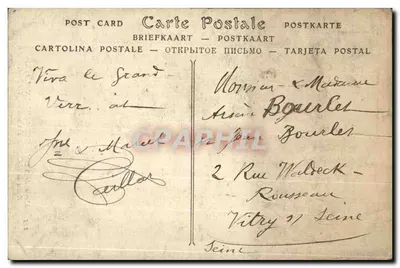 POST CARD Carte Postale POSTKARTE
BRIEFKAART - POSTKAART
CARTOLINA POSTALE - ОТКРЫТОЕ ПИСЬМО - TARJETA POSTAL
Viva le Grand
CPARAMA
Monsieur & Madame
Bourlet
Bourlet
2 Rue Waldeck
Rousseau
Vitry s/ Seine
Seine